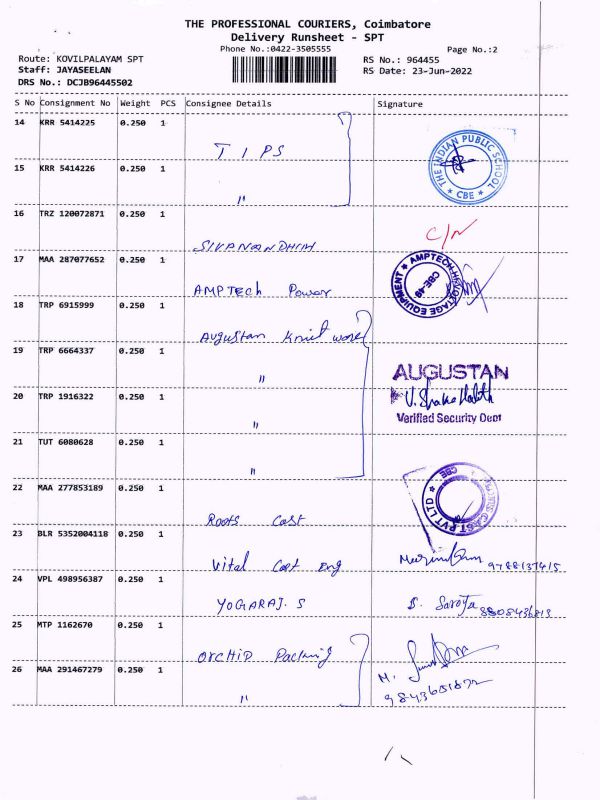 THE PROFESSIONAL COURIERS, Coimbatore
Delivery Runsheet - SPT
Phone No.:0422-3505555
Page No.:2
Route: KOVILPALAYAM SPT
RS No.: 964455
Staff: JAYASEELAN
RS Date: 23-Jun-2022
DRS No.: DCJB96445502
S No Consignment No Weight PCS Consignee Details Signature
14 KRR 5414225 0.250 1 TIPS
THE INDIAN PUBLIC SCHOOL * CBE *
15 KRR 5414226 0.250 1 "
16 TRZ 120072871 0.250 1 SIVANANDHIM C/N
17 MAA 287077652 0.250 1 AMPTECH Power
AMPTECH EQUIPMENT CBE-49
18 TRP 6915999 0.250 1 Augustan Knit wear
19 TRP 6664337 0.250 1 "
AUGUSTAN
20 TRP 1916322 0.250 1 "
Verified Security Dept
21 TUT 6080628 0.250 1 "
22 MAA 277853189 0.250 1 Roots Cast
CAST PVT LTD * CBE
23 BLR 5352004118 0.250 1 Vital Cast Eng 9788137415
24 VPL 498956387 0.250 1 YOGARAJ. S S. Saroja 8808436813
25 MTP 1162670 0.250 1 Orchid Packing
26 MAA 291467279 0.250 1 " M.
9843651872